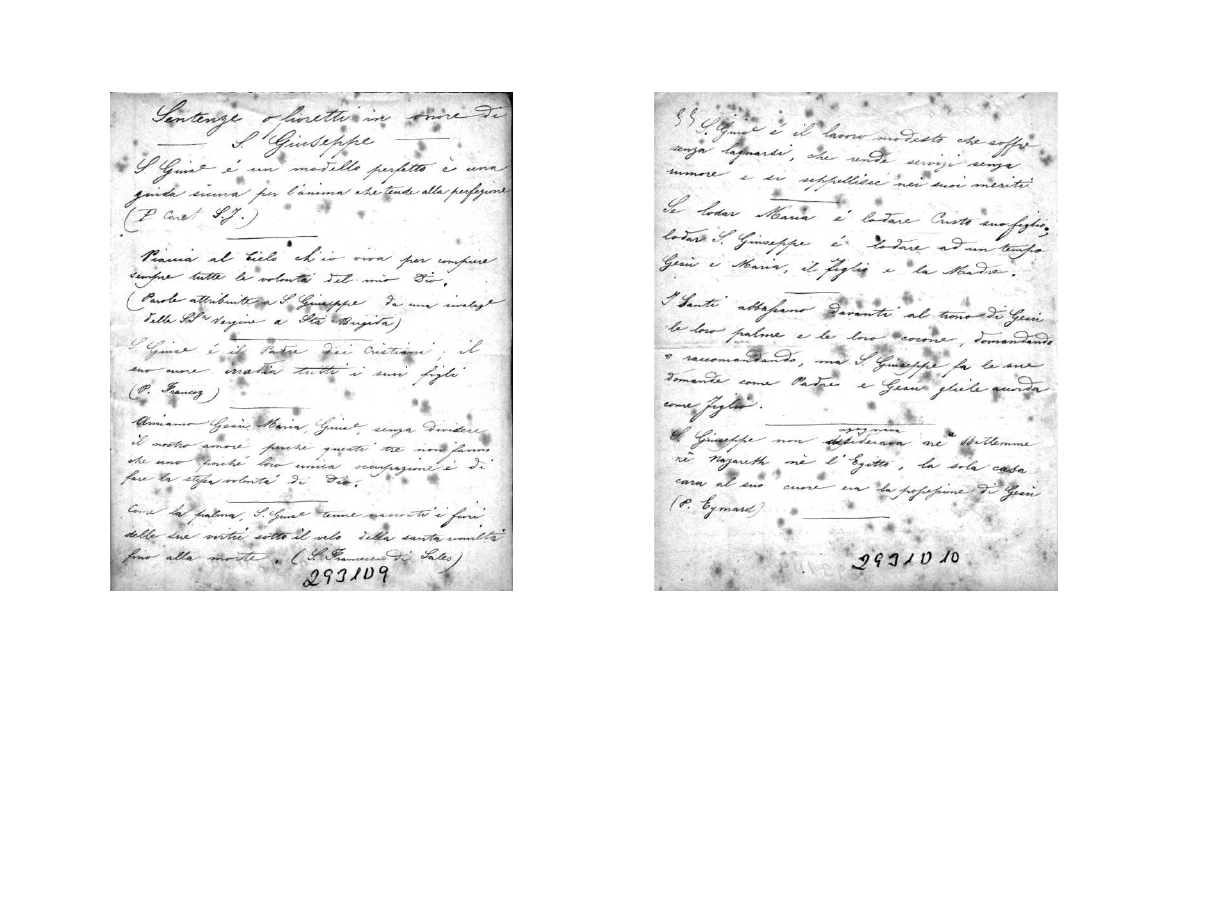 Sentenze o fioretti in onore di
S Giuseppe
S Giusᵉ é un modello perfetto è una
guida sicura per l'anima che tende alla perfezione
(P Caret S.J.)
Piaccia al Cielo ch'io viva per compiere
sempre tutte le volontà del mio Dio.
(Parole attribuite a S Giuseppe da una
della SSᵐᵃ Vergine a Sta Brigida)
S Giusᵉ é il Padre dei Cristiani; il
suo cuore tutti i suoi figli
(P. Francoz)
Amiamo Gesù, Maria, Giusᵉ, senza dividere
il nostro amore perché questi tre non fanno
che uno poiché loro unica occupazione è di
fare la stessa volontà di Dio.
Come la palma, S. Giusᵉ tenne nascosti i fiori
delle sue virtù sotto il velo della santa umiltà
fino alla morte. (S. Francesco di Sales)
293109
S. Giusᵉ é il lavoro modesto che soffre
senza lagnarsi, che rende servizi senza
rumore e si seppellisce nei suoi meriti
Se lodar Maria é lodare Cristo suo figlio,
lodar S. Giuseppe é lodare ad un tempo
Gesù e Maria, il figlio e la Madre.
I Santi abbassano davanti al trono di Gesù
le loro palme e le loro corone, domandando
o raccomandando, ma S. Giuseppe fa le sue
domande come Padre e Gesù gliele accorda
come figlio.
agognava
S. Giuseppe non desiderava né Betlemme
né Nazareth né l'Egitto, la sola casa
cara al suo cuore era la possessione di Gesù
(P. Eymard)
2931010